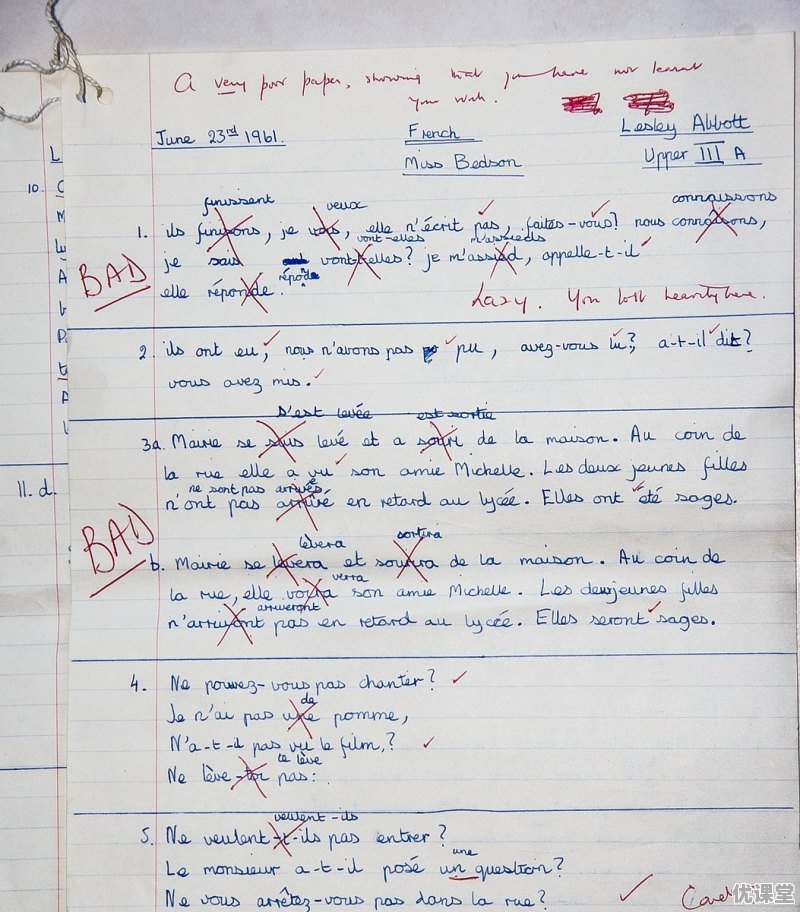 A very poor paper, showing that you have not learnt
your work.
June 23rd 1961. French Lesley Abbott
Miss Bedson Upper III A
L
10. C
finissent veux connaissons
1. ils finissons, je vous, elle n'écrit pas, faites-vous? nous connaîsons,
vont-elles m'assieds
je sais vont-elles? je m'assied, appelle-t-il
BAD
réponde
elle réponde.
Lazy. You lost heavily here.
2. ils ont eu, nous n'avons pas pu, avez-vous lu?, a-t-il dit?
vous avez mis.
s'est levée est sortie
3a. Mairie se sous levé et a souri de la maison. Au coin de
la rue elle a vu son amie Michelle. Les deux jeunes filles
ne sont pas arrivés
11. d. n'ont pas arrivé en retard au lycée. Elles ont été sages.
BAD
lèvera sortira
b. Mairie se levera et sourira de la maison. Au coin de
verra
la rue, elle voira son amie Michelle. Les deuxjeunes filles
arriveront
n'arriveont pas en retard au lycée. Elles seront sages.
4. Ne pouvez-vous pas chanter?
de
Je n'ai pas une pomme,
N'a-t-il pas vu le film,?
te lève
Ne lève-toi pas:
veulent-ils
5. Ne veulent-t-ils pas entrer?
une
Le monsieur a-t-il posé un question?
Ne vous arrêtez-vous pas dans la rue?
优课堂